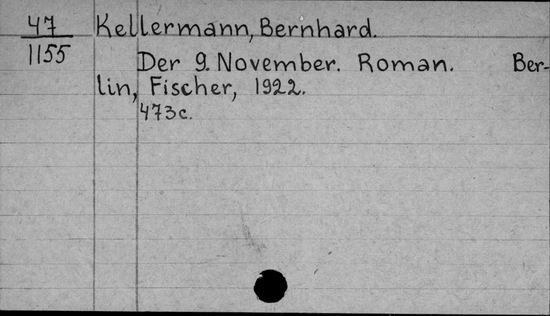 47 Kellermann, Bernhard.
1155
Der 9. November. Roman. Ber-
lin, Fischer, 1922.
473c.